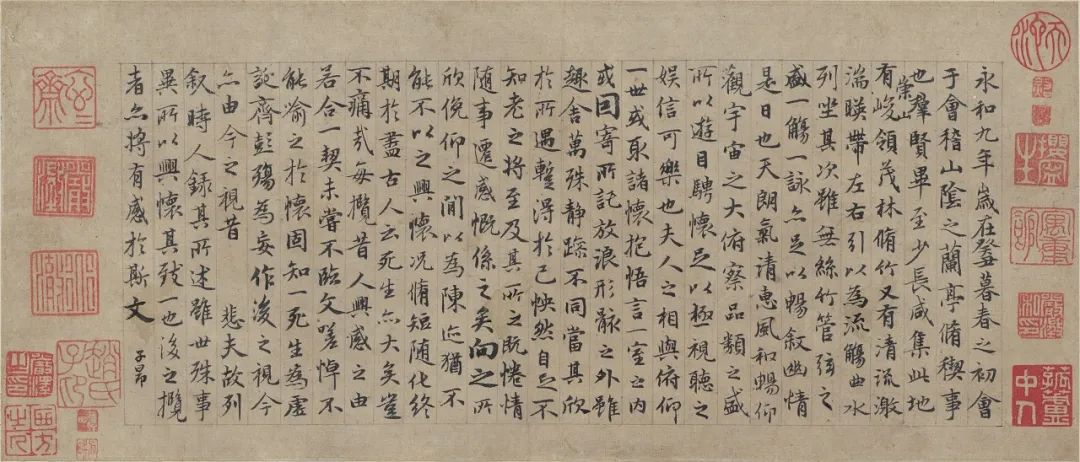 永和九年歲在癸丑暮春之初會
于會稽山陰之蘭亭脩稧事
也羣賢畢至少長咸集此地
有崇山峻領茂林脩竹又有清流激
湍暎帶左右引以為流觴曲水
列坐其次雖無絲竹管弦之
盛一觴一詠亦足以暢敘幽情
是日也天朗氣清惠風和暢仰
觀宇宙之大俯察品類之盛
所以遊目騁懷足以極視聽之
娛信可樂也夫人之相與俯仰
一世或取諸懷抱悟言一室之內
或因寄所託放浪形骸之外雖
趣舍萬殊静躁不同當其欣
於所遇蹔得於己怏然自足不
知老之將至及其所之既惓情
随事遷感慨係之矣向之所
欣俛仰之閒以為陳迹猶不
能不以之興懷況脩短随化終
期於盡古人云死生亦大矣豈
不痛哉每攬昔人興感之由
若合一契未嘗不臨文嗟悼不
能喻之於懷固知一死生為虛
誕齊彭殤為妄作後之視今
亦由今之視昔 悲夫故列
敘時人錄其所述雖世殊事
異所以興懷其致一也後之攬
者亦將有感於斯文
子昂